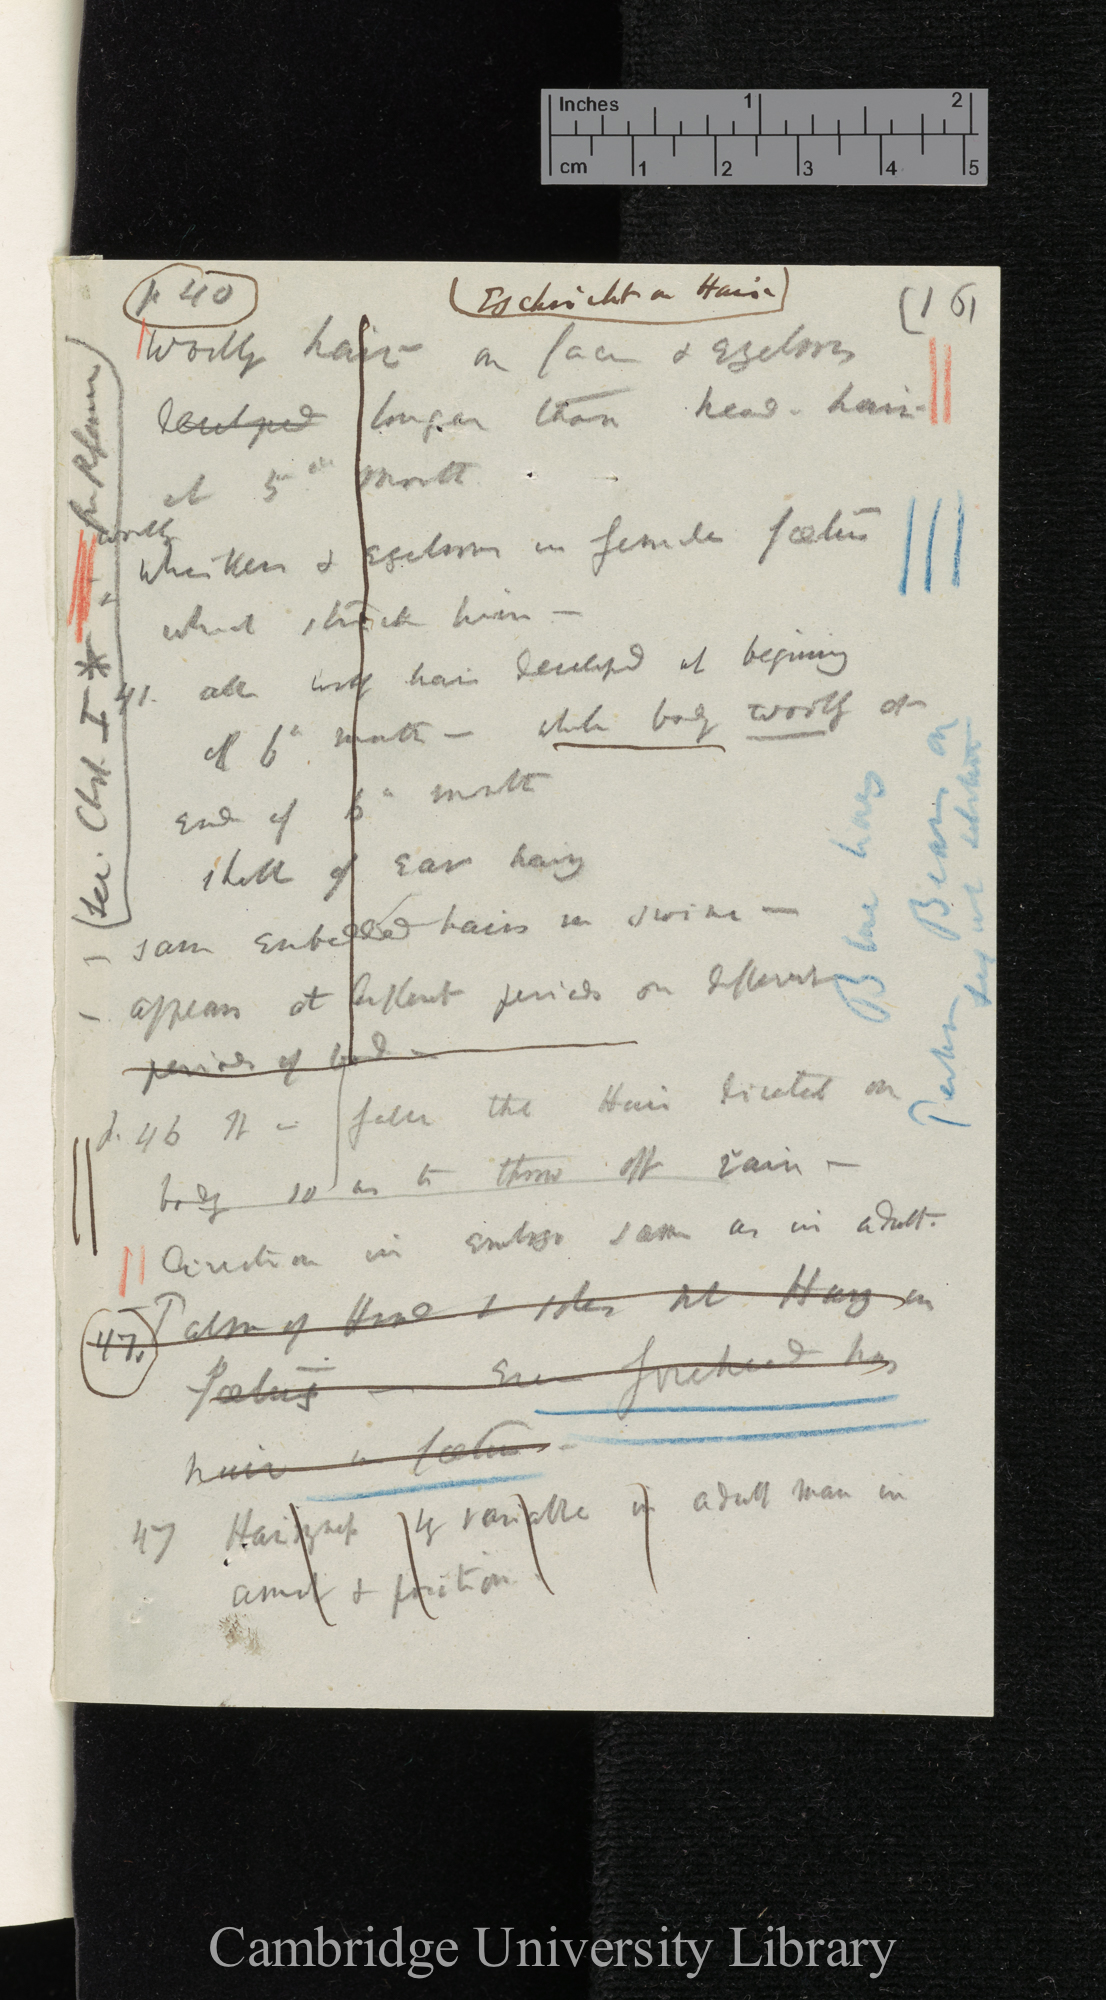 Inches 1 2
cm 1 2 3 4 5
p 40
(Eschricht on Hair)
(16)
Woolly hair on face & eyebrows
developed longer than head-hair
at 5th month
woolly
Whiskers & eyebrows in female fœtus
which struck him —
41. all woolly hair developed at beginning
of 6th month — whole body woolly at
end of 6th month
shell of ear hairy
same embedded hairs in swine —
appears at different periods on different
periods of bod —
p. 46 It is false the Hair directed on
body so as to throw off rain —
Direction in embryo same as in adult.
47. Palm of Hand & soles not Hairy in
fœtus — Even forehead has
hair in fœtus —
47 Hairyness very variable in adult man in
amount & position
See Chpt. I * for Reference
Blue hairy
Perhaps Bears on
Cambridge University Library